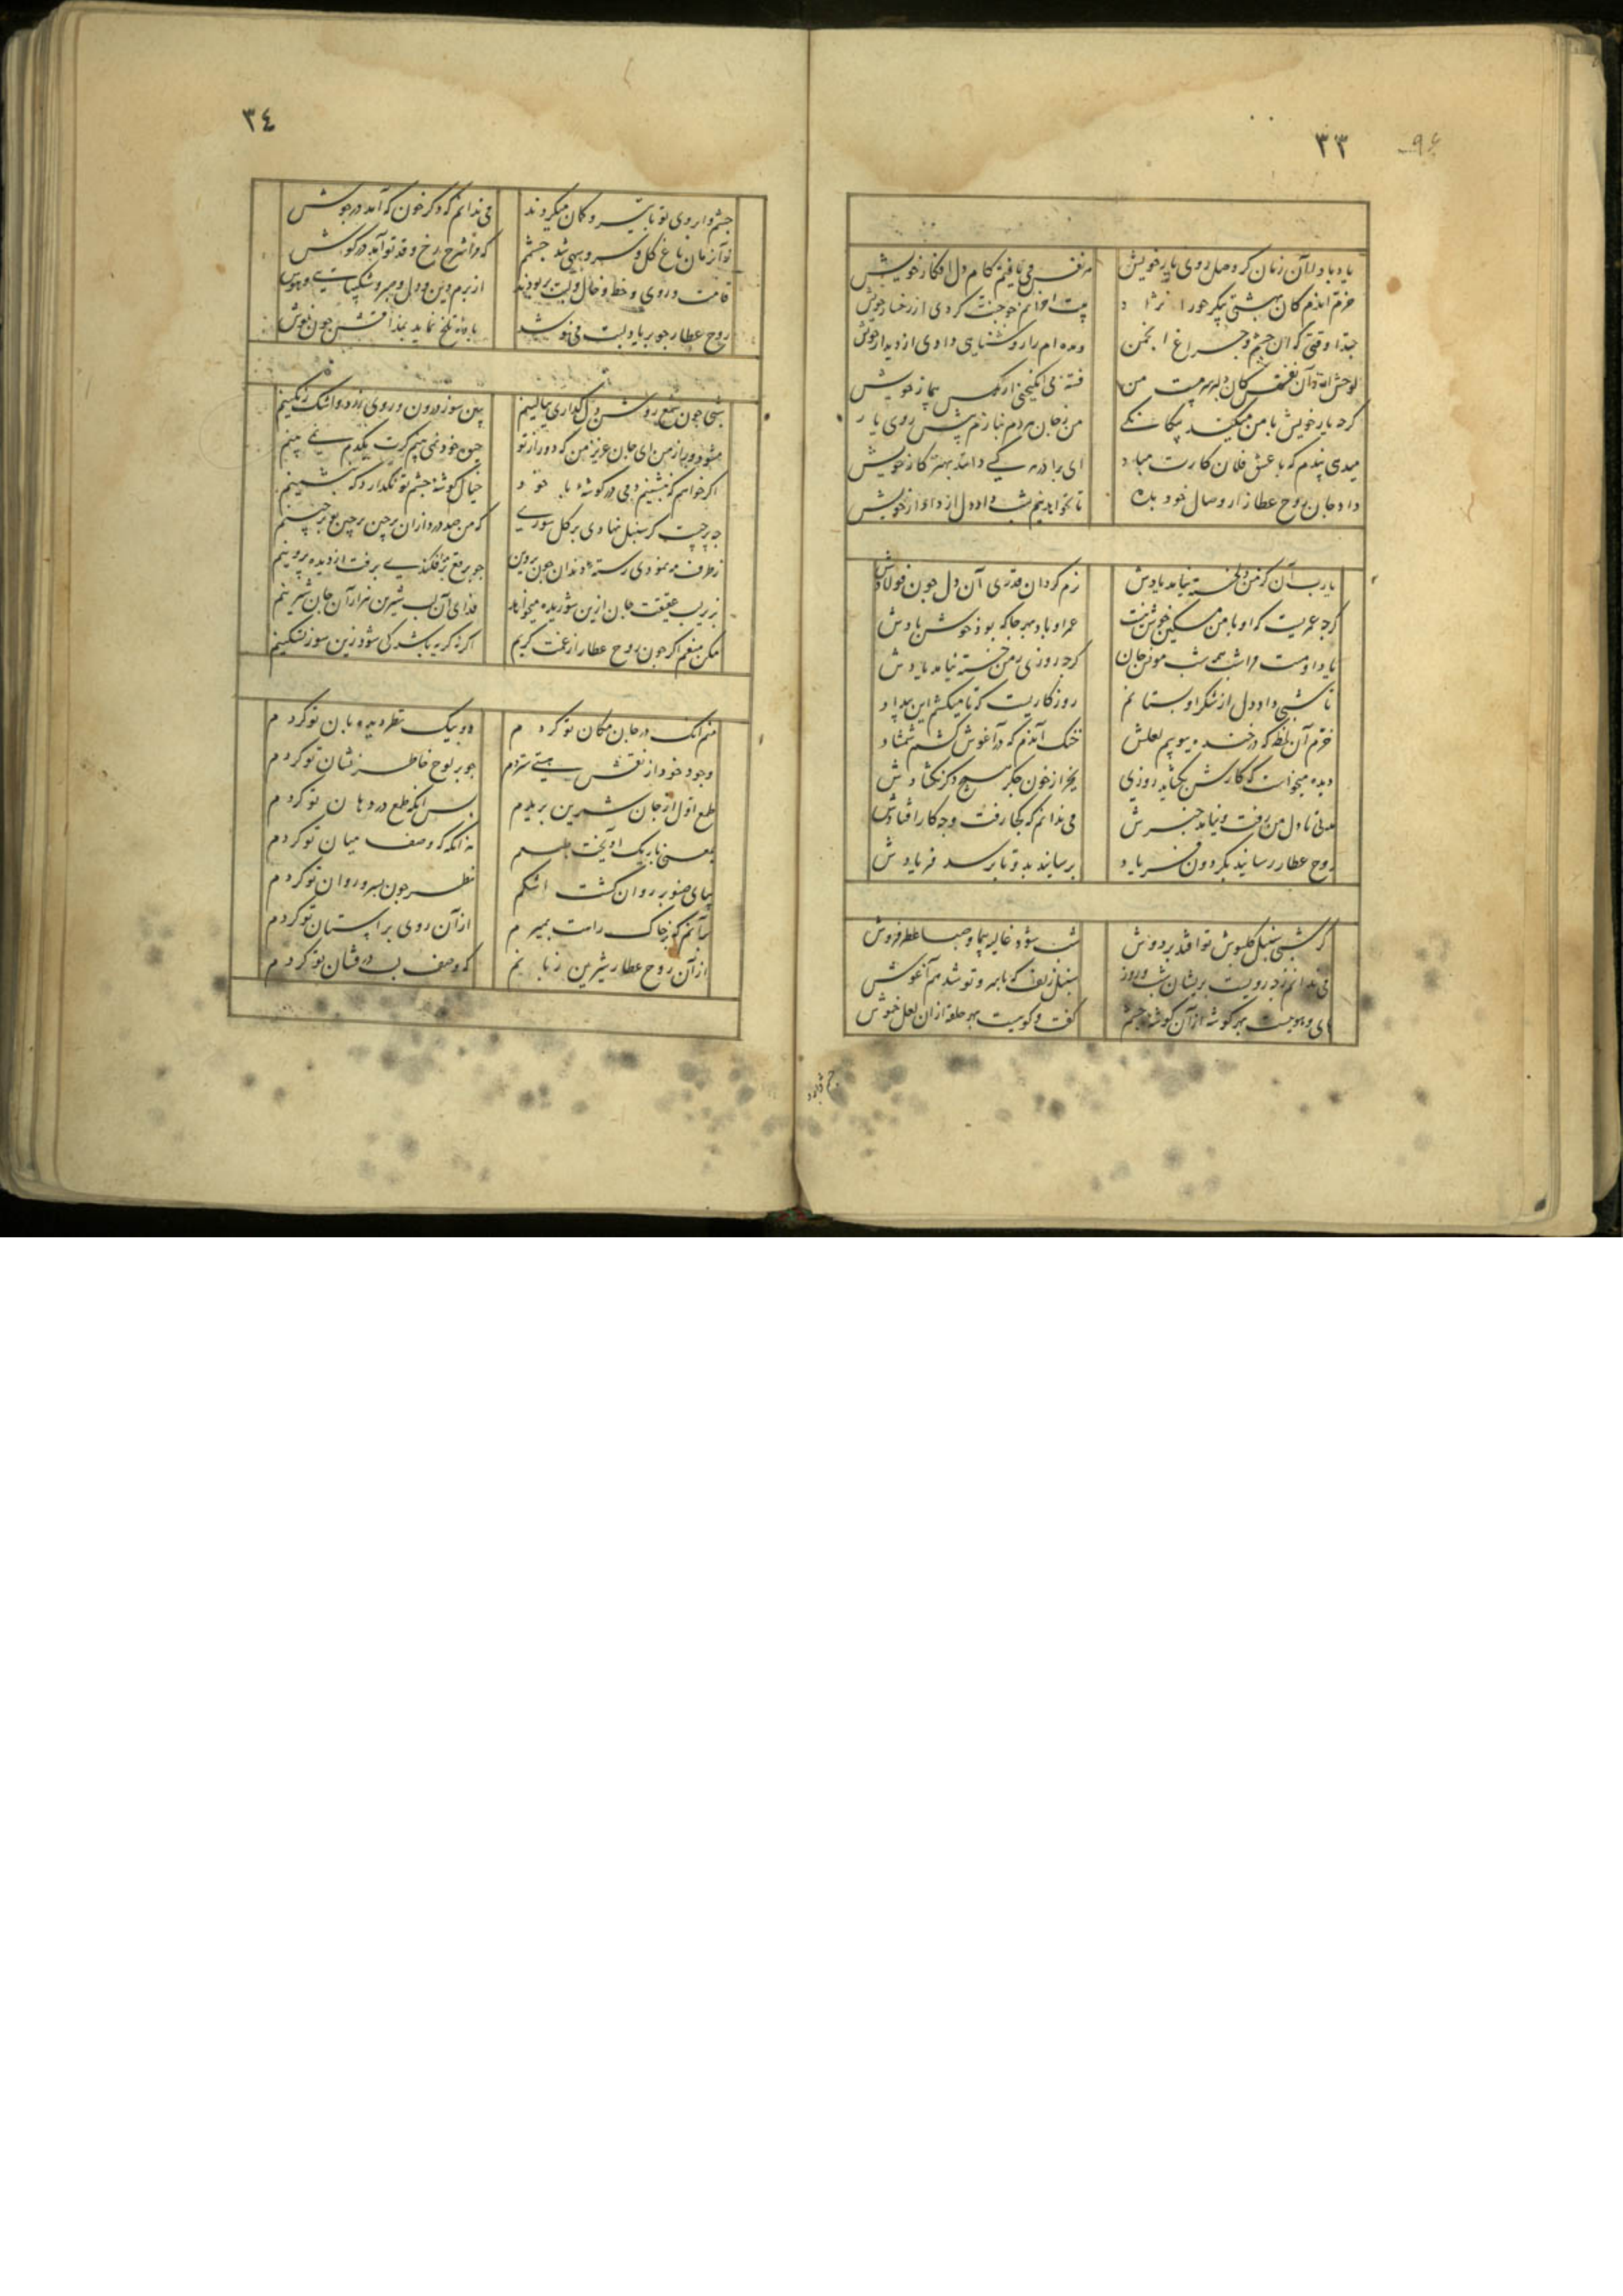 ٣٣
یاد باد ای آن زمان کز وصل روی یار خویش
هر نفس می یافتم کام دل افکار خویش
خرم اندم کان بهشتی پیکر حورا نژاد
کردی از رخسار خویش
حبذا وقتی که ان چشم و چراغ انجمن
دیده ام را روشنایی دادی از دیدار خویش
من
فتنه می انکیختی از نرکس بیمار خویش
کرجه یار خویش با من میکند بیکانکی
من ز جان بردم نیازم پیش روی یار
میدی پندم که با عشق فلان کارت مباد
ای برادر هر کسی داند بهتر کار خویش
داد جان روح عطار از وصال خود بده
تا بخواهد نیم شب داد دل از دادار خویش
یا رب آن کز من دلخسته نیامد یادش
نرم کردان قدری آن دل جون فولادش
کرجه عمریست که او با من مسکین خوش نیست
عمر او باد و بهر جا که بود خوش بادش
یاد اوست مرا شب همه شب مونس جان
کرجه روزی ز من خسته نیامد یادش
تا شبی داد دل از شکر او بستانم
روزکاریست که تا میکشم این بیداد
خرم آن لحظه که در خنده ببویم لعلش
خنک آندم که در آغوش کشم شمشاد
دیده میخواست که کارش بکشاید روزی
بجز از خون جکر هیج دکر نکشادش
مدتی تا دل من رفت و نیامد خبرش
می ندانم که کجا رفت و جه کار افتادش
روح عطار رساند بکردون فریاد
برسانید بدو تا برسد فریادش
کر شبی سنبل کلبوش تو افتد بر دوش
شب شود غالیه سا و صبا عطر فروش
می ندانم ز جه رویست پریشان شب و روز
سنبل زلف که با مهر و تو شد هم آغوش
کوشه از آن کوشه جشم
کفت و کوییست بهر حلقه از ان لعل خموش
٣٤
جشم و ابروی تو با تیر و کمان میکردند
می ندانم که دکر خون که آمد در جوش
تو آن زمان باغ کل و سرو سهی شد جشم
که مرا شرح رخ و قد تو آمد در کوش
قامت و روی و خط و خال و لبت بربودند
از برم دین و دل و صبر و شکیبایی و هوش
روح عطار جو بر یاد لبت می نوشد
باده تلخ نماید بمذاقش جون نوش
شبی جون شمع روشن دل کذاری ببالینم
ببین سوز درون و روی زرد و اشک رنکینم
مشو دور از من ای جان عزیز من که دور از تو
جو خود نمی بینم کرت یکدم نمی بینم
اکر خواهم که بنشینم دمی در کوشه با خود
خیال کوشه جشم تو نکذارد که بنشینم
کر سنبل نهادی بر کل سوری
که من صد درد از ان پرجین
ز طرف مه نمودی رسته دندان جون پروین
جو برقع بر افکندی برفت از دیده پروینم
بزیر لب حقیقت جان ازین شوریده میخواهد
فدای آن لب شیرین هزار آن جان شیرینم
مکن منعم اکر جون روح عطار از غمت کریم
اکر نه کریه باشد کی شود زین سوز تسکینم
منم انک در جان مکان تو کردم
دو بینک نظر دیده بان تو کردم
وجود خود از نقش هستی ستردم
جو بر لوح خاطر نشان تو کردم
طمع اول از جان شیرین بریدم
بس انکه طمع در دهان تو کردم
بمعنی باریک آویخت طبعم
نه انکه که وصف میان تو کردم
بپای صنوبر روان کشت اشکم
نظر جون بسرو روان تو کردم
بر آنم که بر خاک راهت بمیرم
از آن روی بر آستان تو کردم
از آن روح عطار شیرین زبانم
که وصف لب در فشان تو کردم